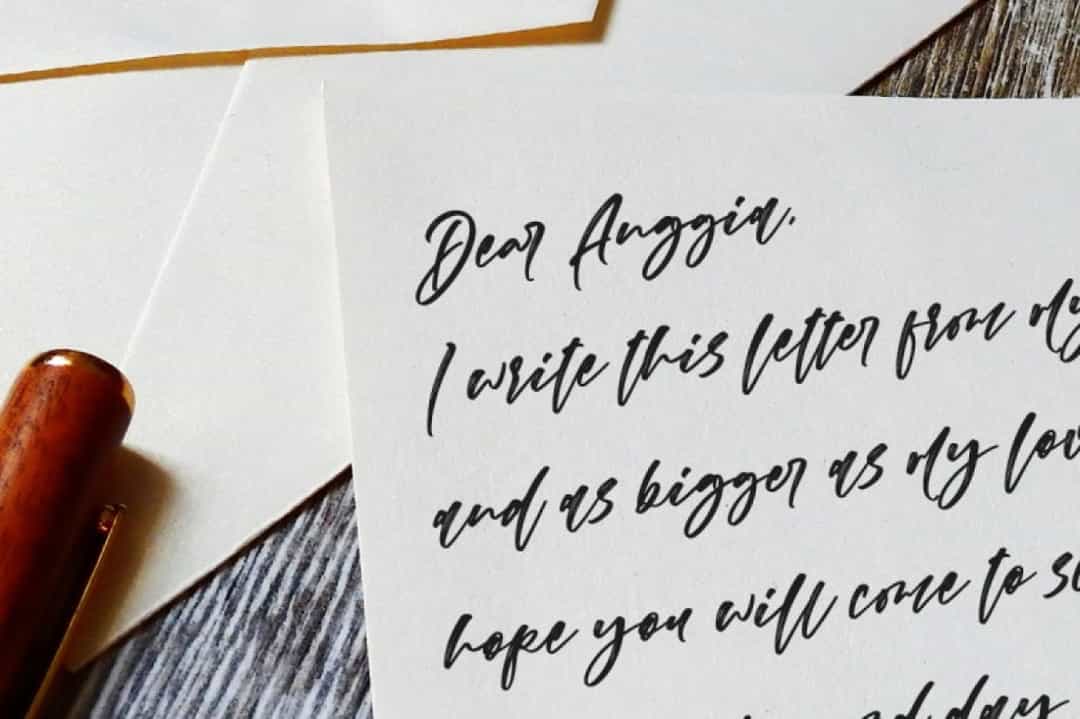 Dear Anggia,
I write this letter from my
and as bigger as my lov
hope you will come to se
day